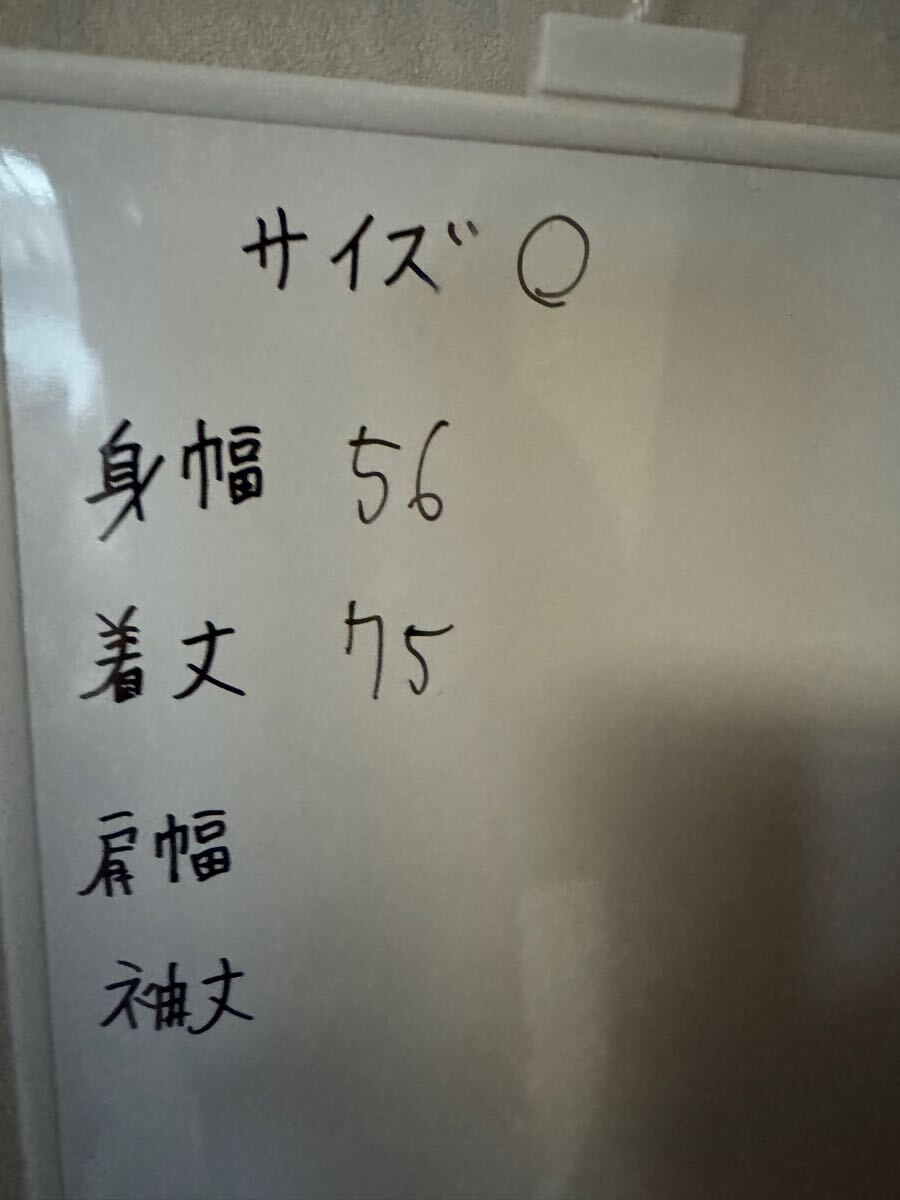 サイズ 0
身幅 56
着丈 75
肩幅
袖丈